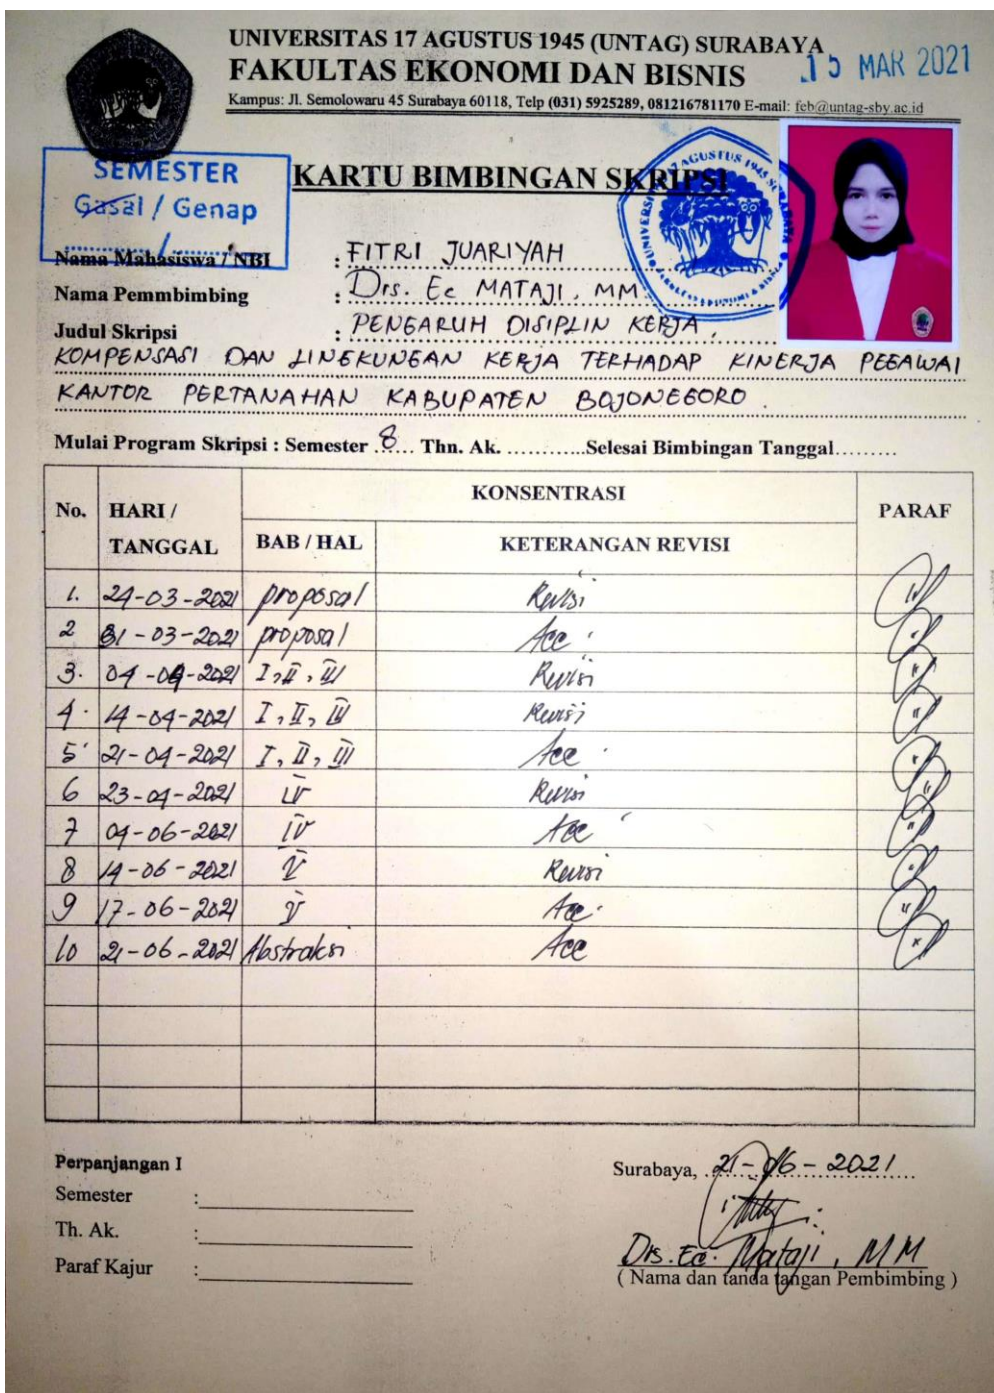 UNIVERSITAS 17 AGUSTUS 1945 (UNTAG) SURABAYA
FAKULTAS EKONOMI DAN BISNIS
15 MAR 2021
Kampus: Jl. Semolowaru 45 Surabaya 60118, Telp (031) 5925289, 081216781170 E-mail: feb@untag-sby.ac.id
SEMESTER
Gasal / Genap
KARTU BIMBINGAN SKRIPSI
Nama Mahasiswa / NBI : FITRI JUARIYAH
Nama Pemmbimbing : Drs. Ec MATAJI, MM
Judul Skripsi : PENGARUH DISIPLIN KERJA,
KOMPENSASI DAN LINGKUNGAN KERJA TERHADAP KINERJA PEGAWAI
KANTOR PERTANAHAN KABUPATEN BOJONEGORO.
Mulai Program Skripsi : Semester 8 Thn. Ak. .............Selesai Bimbingan Tanggal.........
No. HARI / TANGGAL KONSENTRASI PARAF
BAB / HAL KETERANGAN REVISI
1. 24-03-2021 proposal Revisi
2 31-03-2021 proposal Acc
3. 04-04-2021 I, II, III Revisi
4. 14-04-2021 I, II, III Revisi
5 21-04-2021 I, II, III Acc
6 23-04-2021 IV Revisi
7 04-06-2021 IV Acc
8 14-06-2021 V Revisi
9 17-06-2021 V Acc.
10 21-06-2021 Abstraksi Acc
Perpanjangan I
Semester :
Th. Ak. :
Paraf Kajur :
Surabaya, 21-06-2021
Drs. Ec. Mataji, MM
( Nama dan tanda tangan Pembimbing )